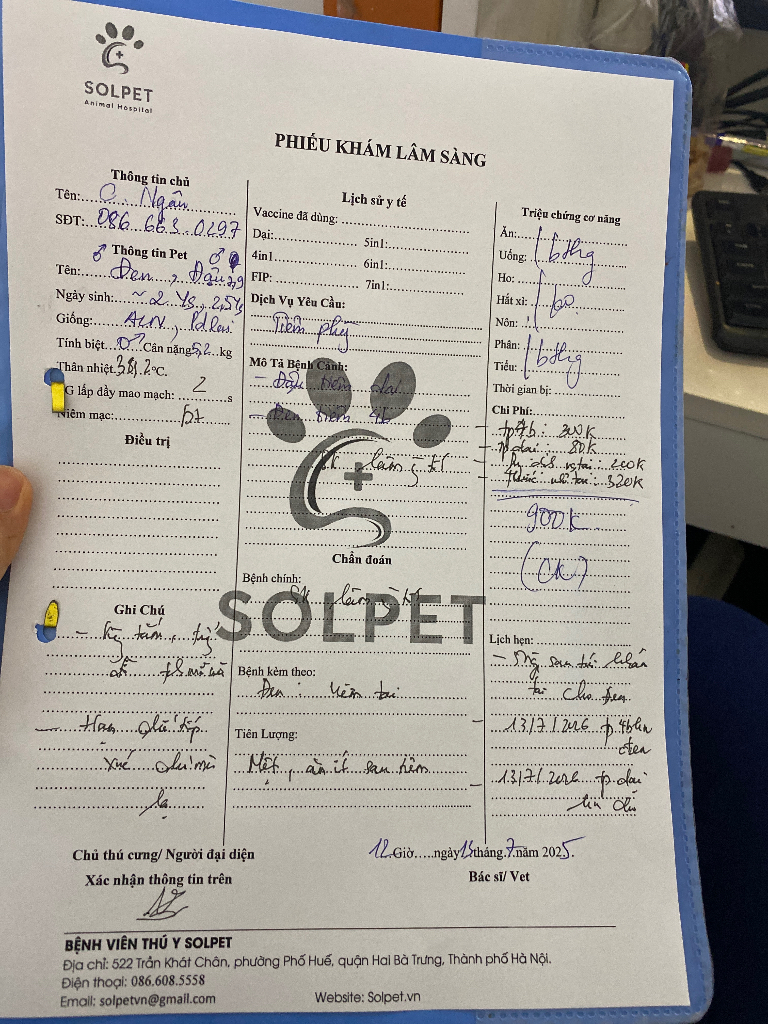 SOLPET
Animal Hospital
PHIẾU KHÁM LÂM SÀNG
Thông tin chủ
Tên: C. Ngân
SĐT: 086.663.0297
♂ Thông tin Pet ♂
Tên: Đen, Đậu
Ngày sinh: ~2 Ys, 2,5Ys
Giống: ALN,
Tính biệt ♂ Cân nặng 5,2 kg
Thân nhiệt 38,2 °C.
TG lấp đầy mao mạch: 2 s
Niêm mạc: bt
Điều trị
Ghi Chú
- Kg tắm,
- Hạn chế
xúc
lạ
Lịch sử y tế
Vaccine đã dùng:
Dại: 5in1:
4in1 6in1:
FIP: 7in1:
Dịch Vụ Yêu Cầu:
Tiêm phg
Mô Tả Bệnh Cảnh:
- Đậu tiêm dại
- Đen tiêm 4b
lâm
Chẩn đoán
Bệnh chính:
SK lâm
SOLPET
Bệnh kèm theo:
Đen: viêm tai
Tiên Lượng:
Mệt, ăn ít sau tiêm
Triệu chứng cơ năng
Ăn:
Uống: bthg
Ho:
Hắt xì: ko
Nôn:
Phân: bthg
Tiểu:
Thời gian bị:
Chi Phí:
- 4b: 300K
- p dại: 80K
- tai: 200K
- thuốc nhỏ tai: 320K
900K
(CK)
Lịch hẹn:
- sau tái khám
tai cho Đen
- 13/7/2026 p. 4b
đen
- 13/7/2026 p. dại
Chủ thú cưng/ Người đại diện
Xác nhận thông tin trên
12 Giờ.....ngày 13 tháng 7 năm 2025.
Bác sĩ/ Vet
BỆNH VIỆN THÚ Y SOLPET
Địa chỉ: 522 Trần Khát Chân, phường Phố Huế, quận Hai Bà Trưng, Thành phố Hà Nội.
Điện thoại: 086.608.5558
Email: solpetvn@gmail.com Website: Solpet.vn